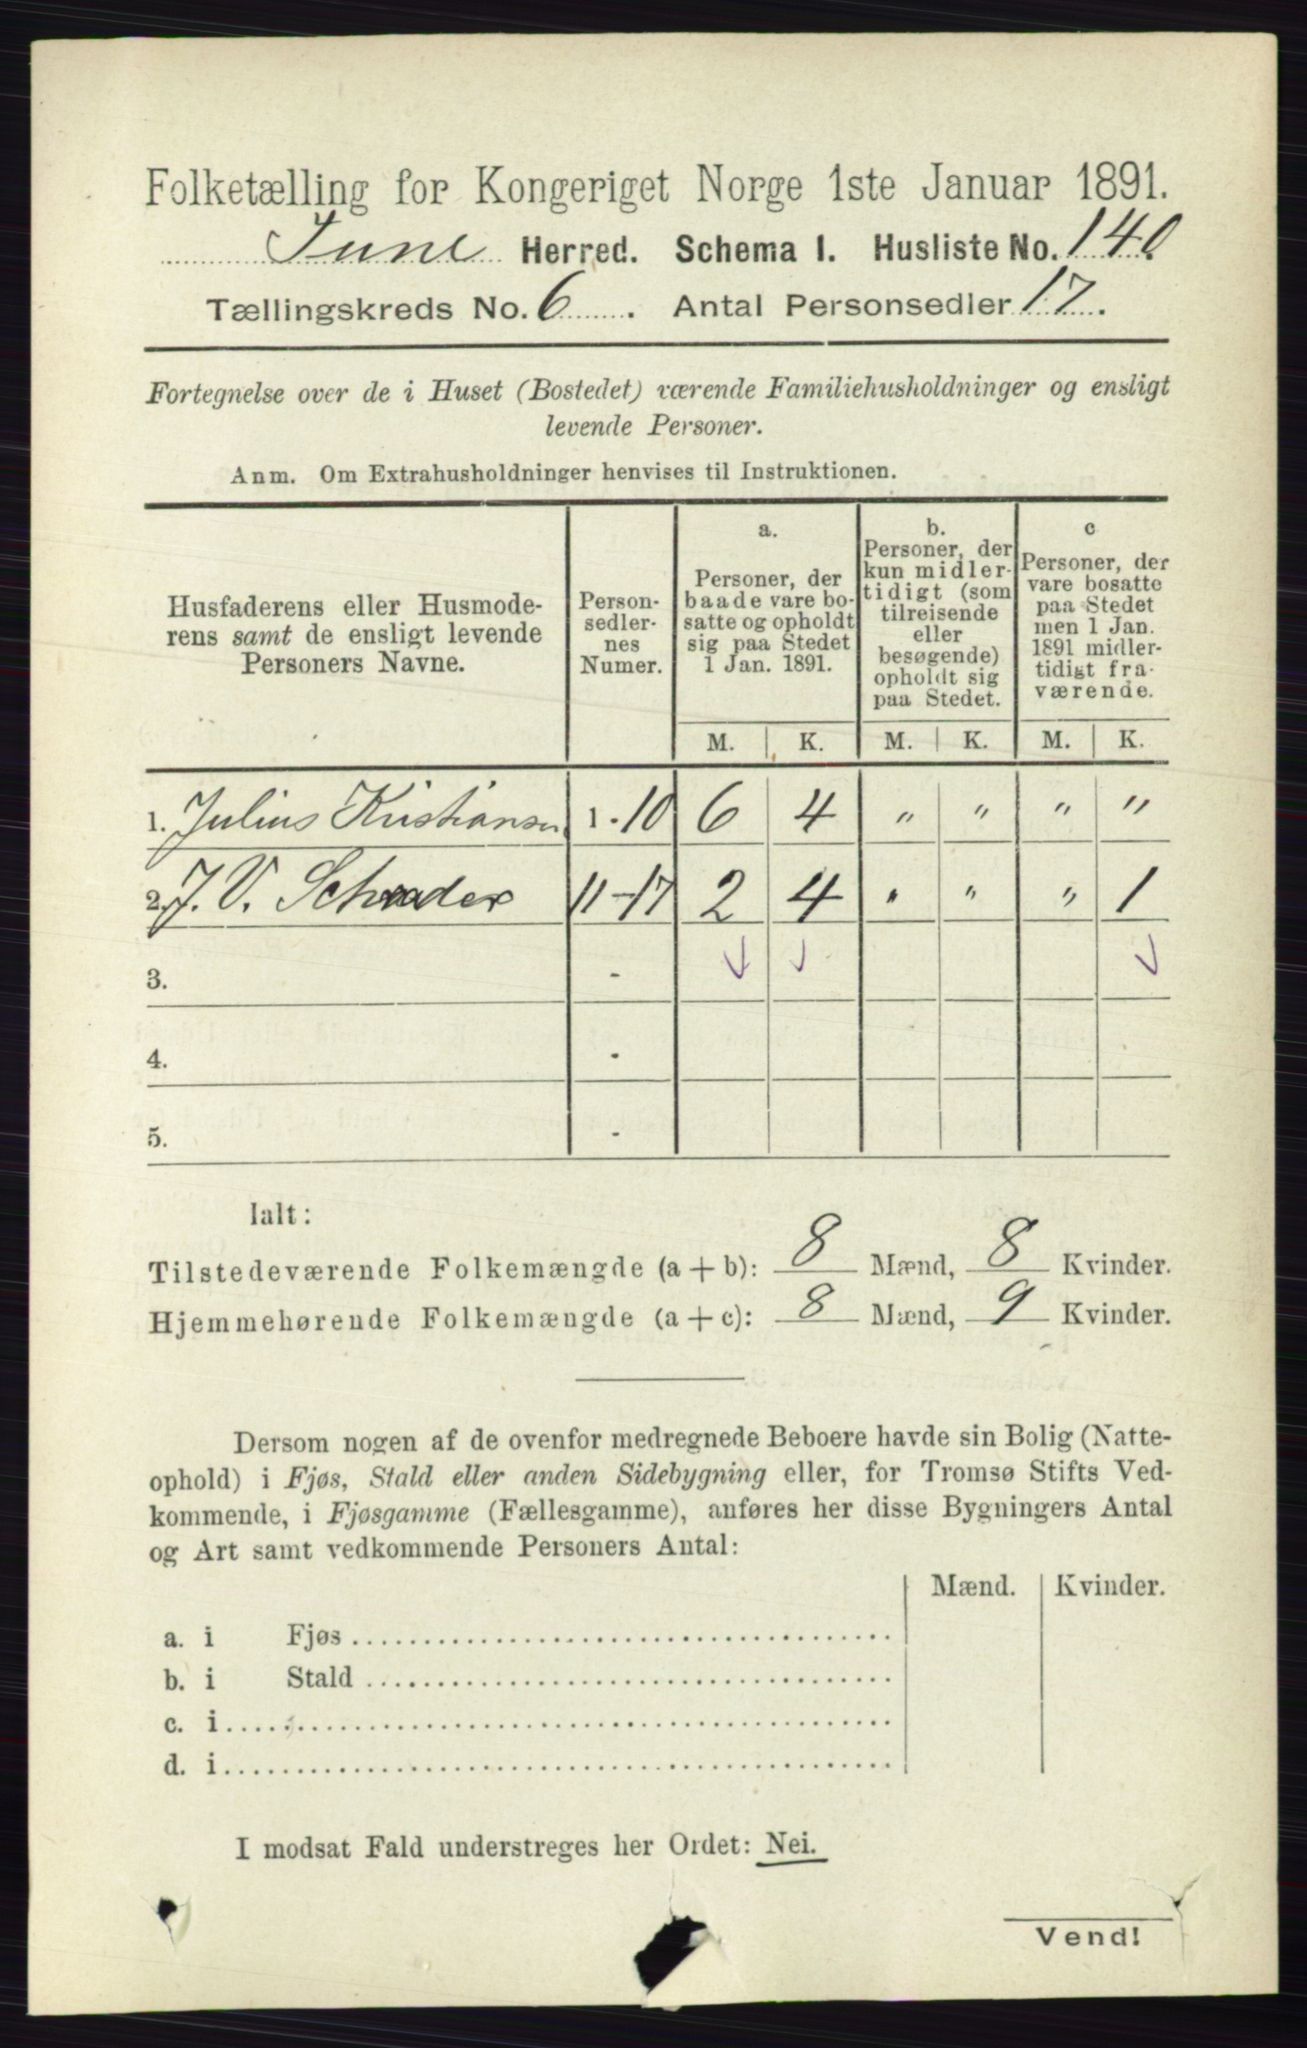 Folketælling for Kongeriget Norge 1ste Januar 1891.
Tune Herred. Schema I. Husliste No. 140
Tællingskreds No. 6. Antal Personsedler 17.
Fortegnelse over de i Huset (Bostedet) værende Familiehusholdninger og ensligt
levende Personer.
Anm. Om Extrahusholdninger henvises til Instruktionen.
Husfaderens eller Husmode-
rens samt de ensligt levende
Personers Navne.
Person-
sedler-
nes
Numer.
a.
Personer, der
baade vare bo-
satte og opholdt
sig paa Stedet
1 Jan. 1891.
b.
Personer, der
kun midler-
tidigt (som
tilreisende
eller
besøgende)
opholdt sig
paa Stedet.
c
Personer, der
vare bosatte
paa Stedet
men 1 Jan.
1891 midler-
tidigt fra-
værende.
M. K. M. K. M. K.
1. Julius Kristiansen 1-10 6 4 " " " "
2. J. V. Schrader 11-17 2 4 " " " 1
3. -
4. -
5. -
Ialt:
Tilstedeværende Folkemængde (a + b): 8 Mænd, 8 Kvinder.
Hjemmehørende Folkemængde (a + c): 8 Mænd, 9 Kvinder.
Dersom nogen af de ovenfor medregnede Beboere havde sin Bolig (Natte-
ophold) i Fjøs, Stald eller anden Sidebygning eller, for Tromsø Stifts Ved-
kommende, i Fjøsgamme (Fællesgamme), anføres her disse Bygningers Antal
og Art samt vedkommende Personers Antal:
Mænd. Kvinder.
a. i Fjøs
b. i Stald
c. i
d. i
I modsat Fald understreges her Ordet: Nei.
Vend!